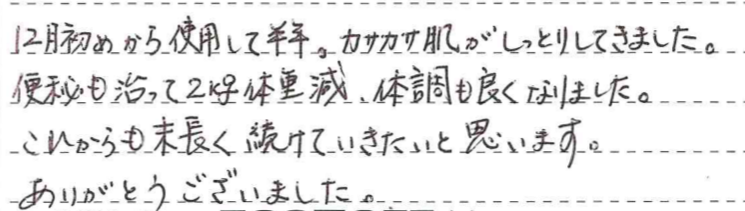 12月初めから使用して半年。カサカサ肌がしっとりしてきました。
便秘も治って2kg体重減、体調も良くなりました。
これからも末長く続けていきたいと思います。
ありがとうございました。